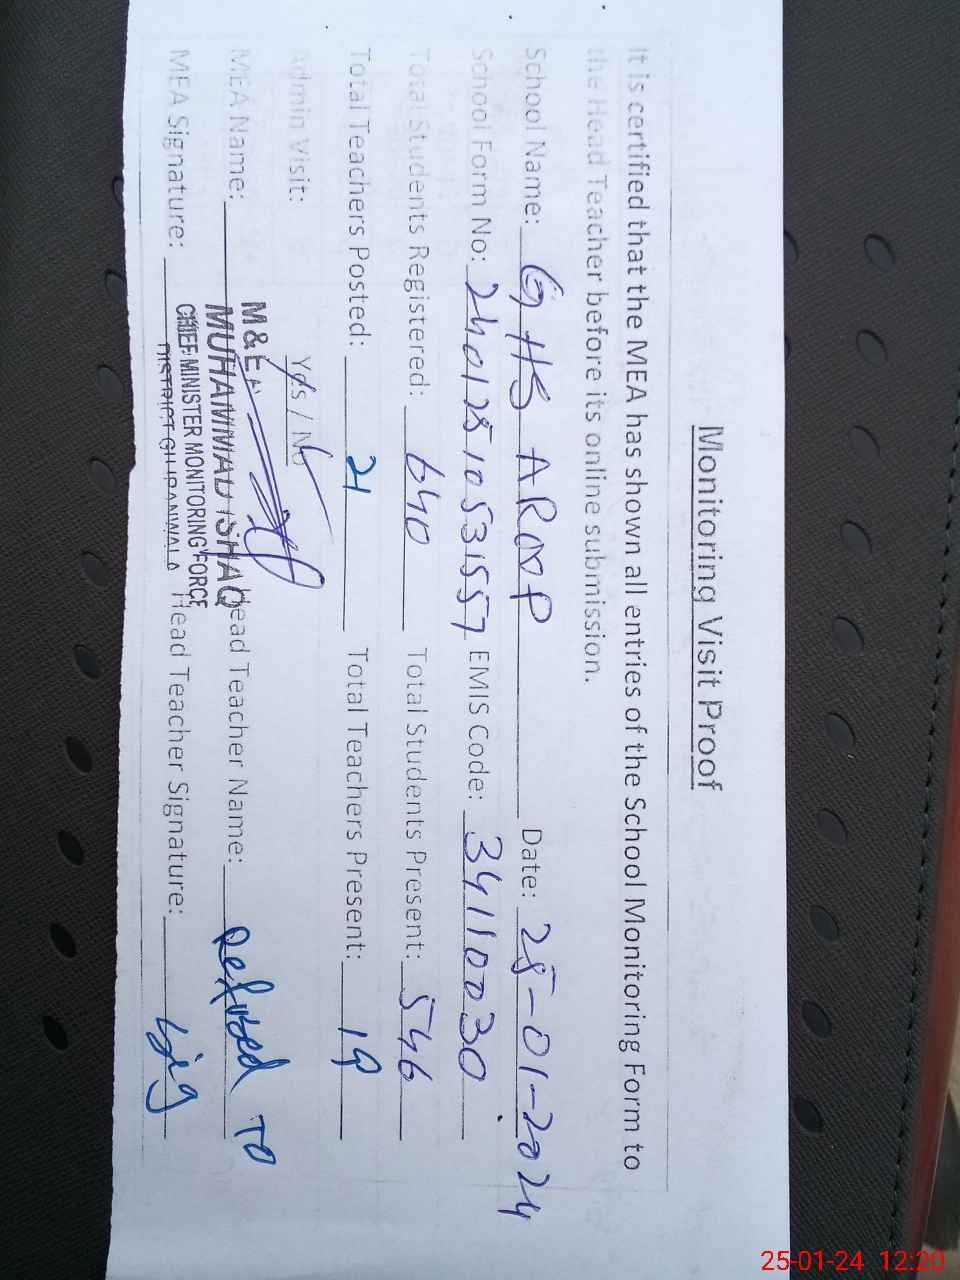 Monitoring Visit Proof
It is certified that the MEA has shown all entries of the School Monitoring Form to
the Head Teacher before its online submission.
School Name: GHS AROOP Date: 25-01-2024
School Form No: 24012510531557 EMIS Code: 34110030
Total Students Registered: 640 Total Students Present: 546
Total Teachers Posted: 21 Total Teachers Present: 19
Admin Visit: Yes / No
MEA Name: Head Teacher Name: Refused TO
MEA Signature: Head Teacher Signature: sig
M&E
MUHAMMAD ISHAQ
CHIEF MINISTER MONITORING FORCE
DISTRICT GUJRANWALA
25-01-24 12:20